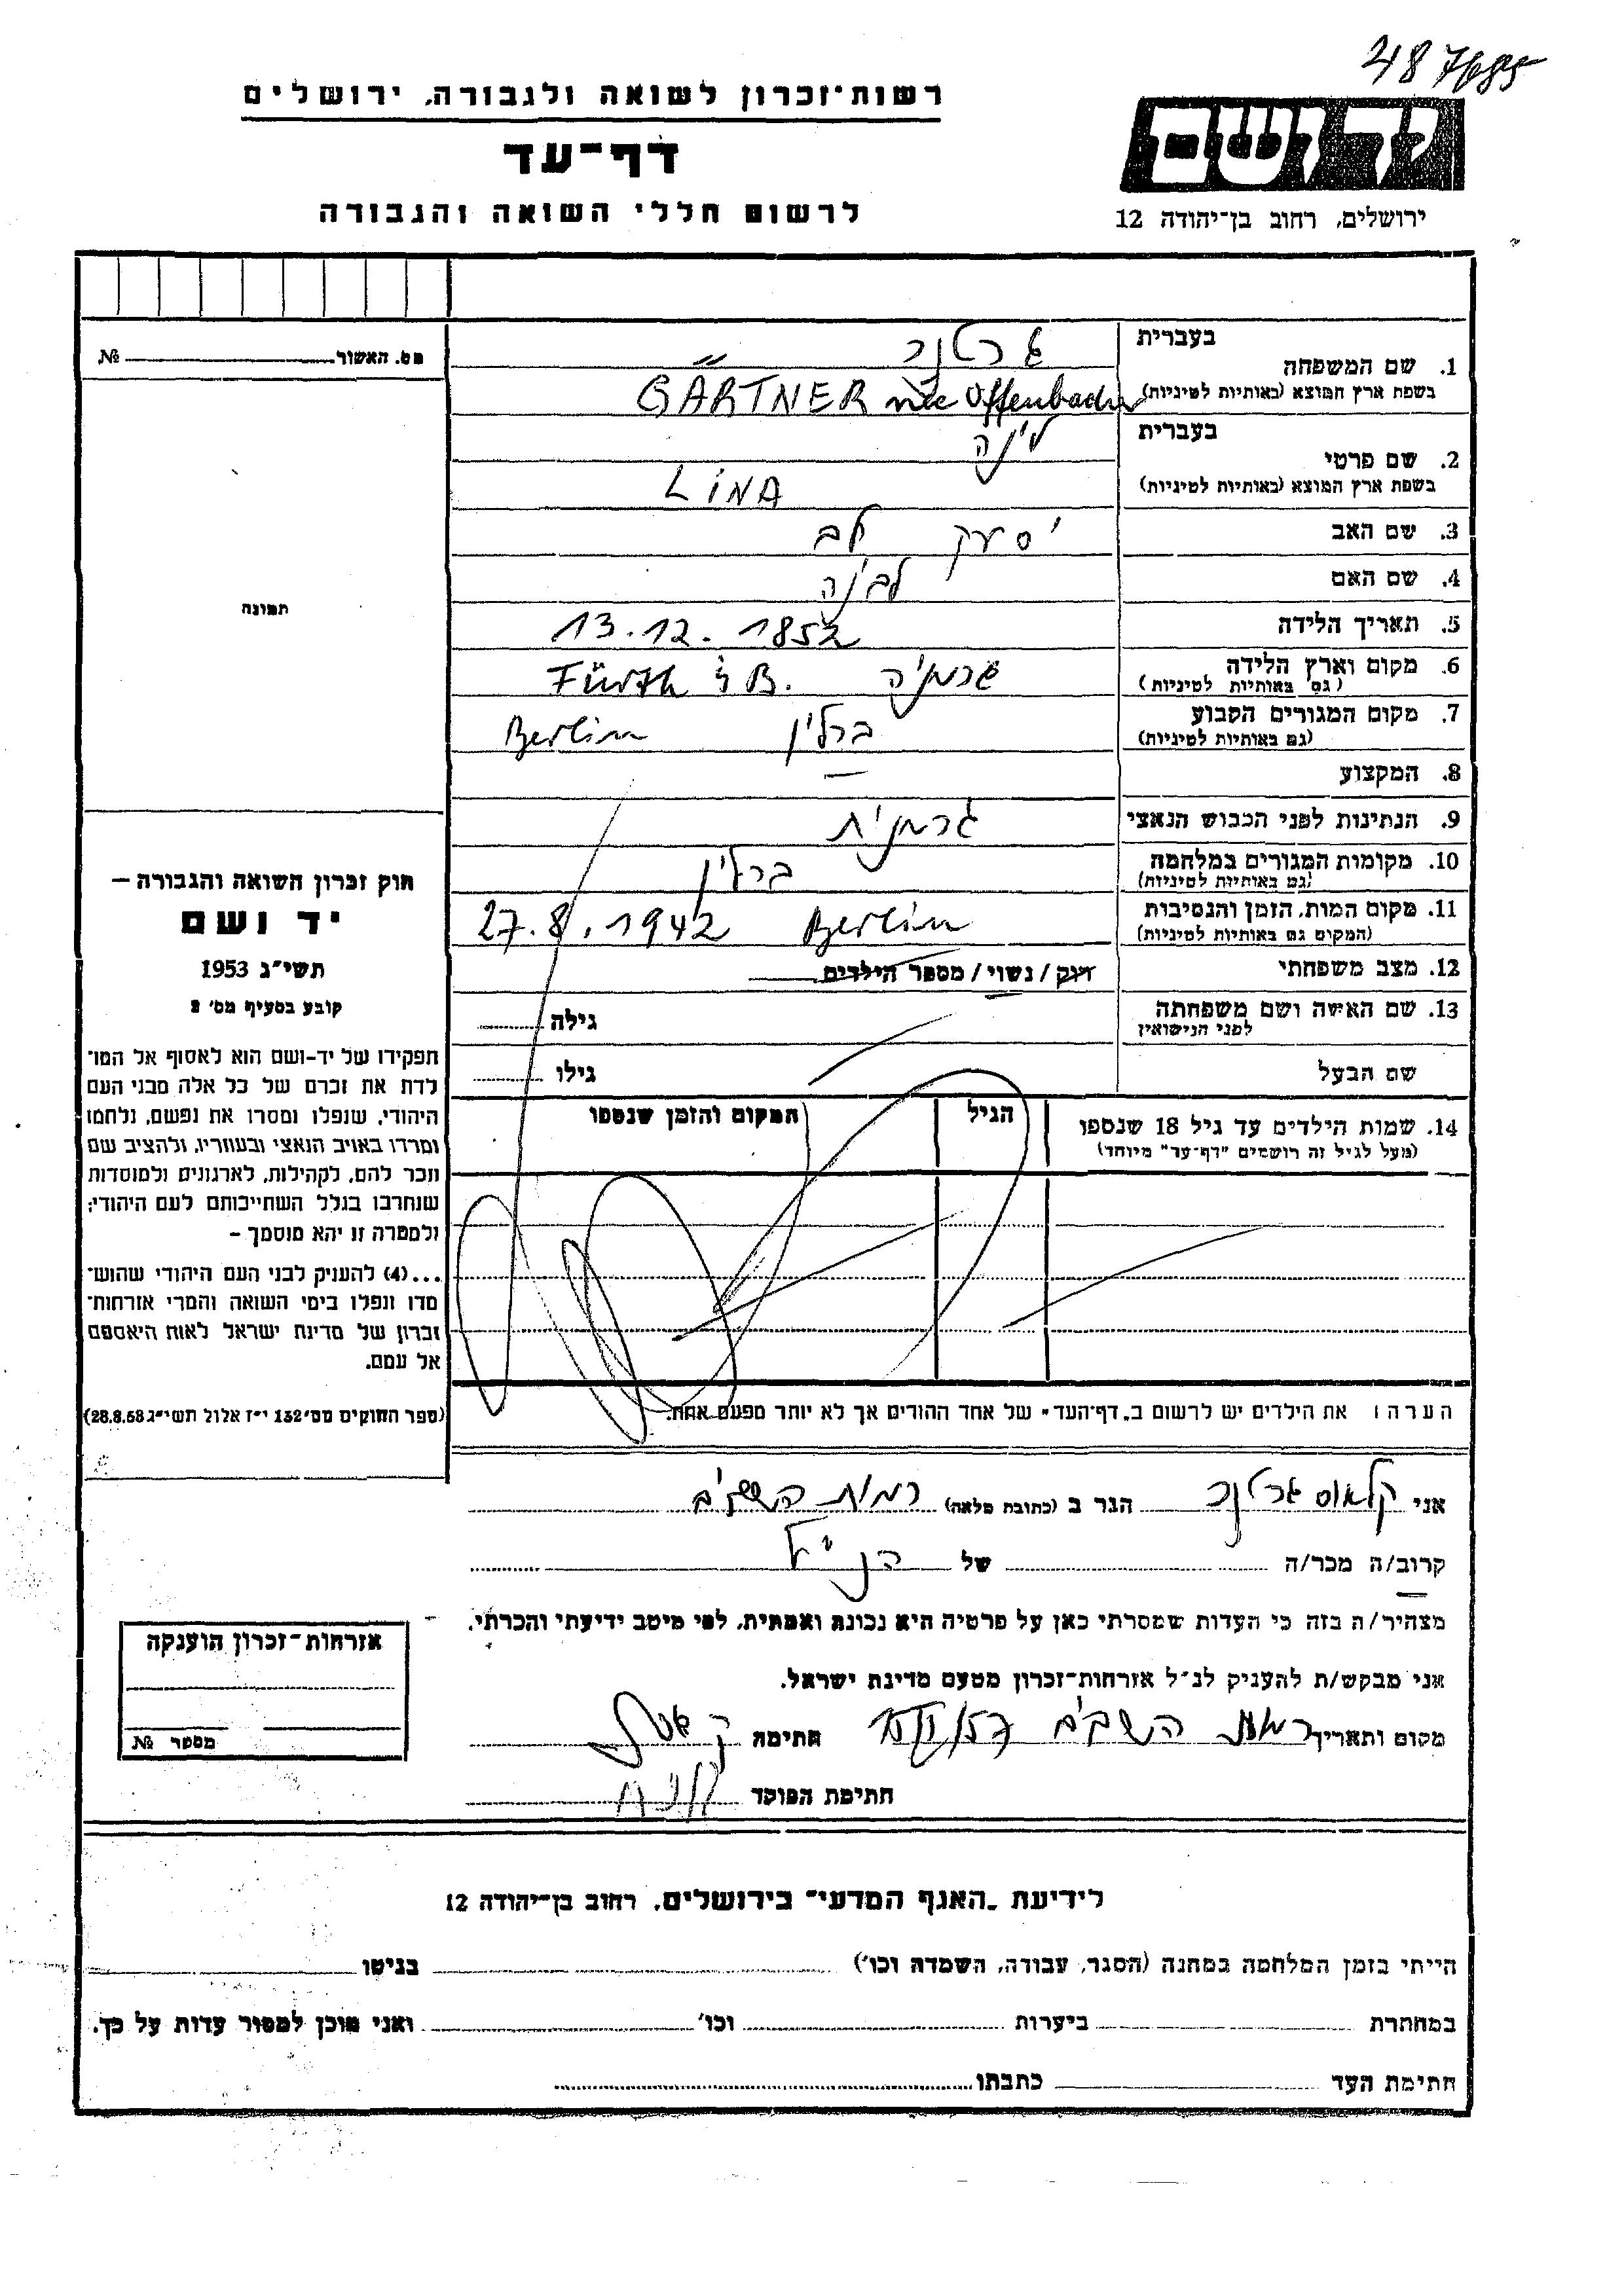 487685
רשות-זכרון לשואה ולגבורה, ירושלים
דף-עד
לרשום חללי השואה והגבורה
יד ושם
ירושלים, רחוב בן-יהודה 12
מס. האשור № 
בעברית גרטנר
1. שם המשפחה
בשפת ארץ המוצא (באותיות לטיניות) GÄRTNER née Offenbacher
בעברית לינה
2. שם פרטי
בשפת ארץ המוצא (באותיות לטיניות) LINA
3. שם האב לב
4. שם האם
5. תאריך הלידה 13.12.1852
6. מקום וארץ הלידה גרמניה Fürth i B.
(גם באותיות לטיניות)
7. מקום המגורים הקבוע ברלין Berlin
(גם באותיות לטיניות)
8. המקצוע —
9. הנתינות לפני הכבוש הנאצי גרמנית
10. מקומות המגורים במלחמה ברלין
(גם באותיות לטיניות)
11. מקום המות, הזמן והנסיבות Berlin 27.8.1942
(המקום גם באותיות לטיניות)
12. מצב משפחתי רווק / נשוי / מספר הילדים
13. שם האשה ושם משפחתה גילה
לפני הנישואין
שם הבעל גילו
14. שמות הילדים עד גיל 18 שנספו הגיל המקום והזמן שנספו
(מעל לגיל זה רושמים "דף-עד" מיוחד)
הערה: את הילדים יש לרשום ב"דף-העד" של אחד ההורים אך לא יותר מפעם אחת.
תמונה
חוק זכרון השואה והגבורה –
יד ושם
תשי"ג 1953
קובע בסעיף מס' 2
תפקידו של יד-ושם הוא לאסוף אל המו־
לדת את זכרם של כל אלה מבני העם
היהודי, שנפלו ומסרו את נפשם, נלחמו
ומרדו באויב הנאצי ובעוזריו, ולהציב שם
וזכר להם, לקהילות, לארגונים ולמוסדות
שנחרבו בגלל השתייכותם לעם היהודי;
ולמטרה זו יהא מוסמך –
...(4) להעניק לבני העם היהודי שהוש־
מדו ונפלו בימי השואה והמרי אזרחות־
זכרון של מדינת ישראל לאות היאספם
אל עמם.
(ספר החוקים מס' 132 י"ז אלול תשי"ג 28.8.53)
אני קלאוס גרטנר הגר ב (כתובת מלאה) רמות השבים
קרוב/ה מכר/ה של הנ"ל
מצהיר/ה בזה כי העדות שמסרתי כאן על פרטיה היא נכונה ואמתית, לפי מיטב ידיעתי והכרתי.
אני מבקש/ת להעניק לנ"ל אזרחות-זכרון מטעם מדינת ישראל.
מקום ותאריך רמות השבים חתימה
חתימת הפוקד
אזרחות-זכרון הוענקה
מספר №
לידיעת "האגף המדעי" בירושלים, רחוב בן-יהודה 12
הייתי בזמן המלחמה במחנה (הסגר, עבודה, השמדה וכו') בגיטו
במחתרת ביערות וכו' ואני מוכן למסור עדות על כך.
חתימת העד כתבתו